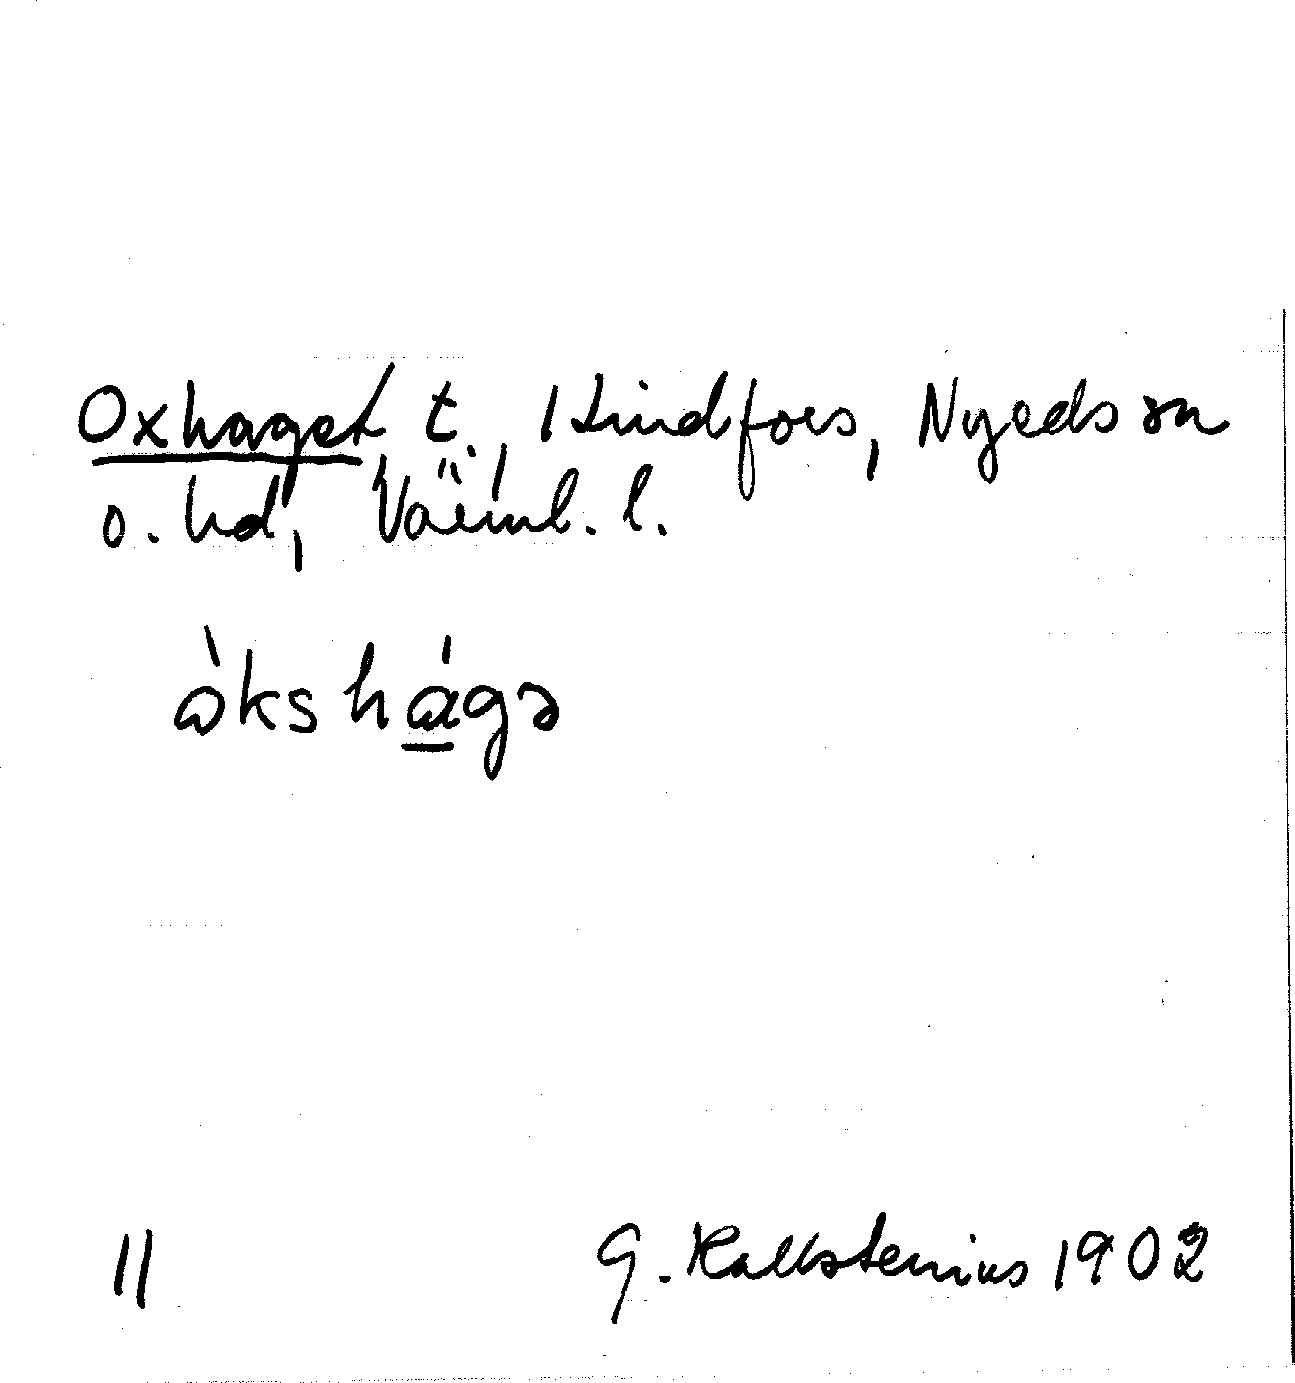 Oxhaget t., Hindfors, Nyeds sn
o. hd, Värml. l.
òkshágə
11 G. Kallstenius 1902